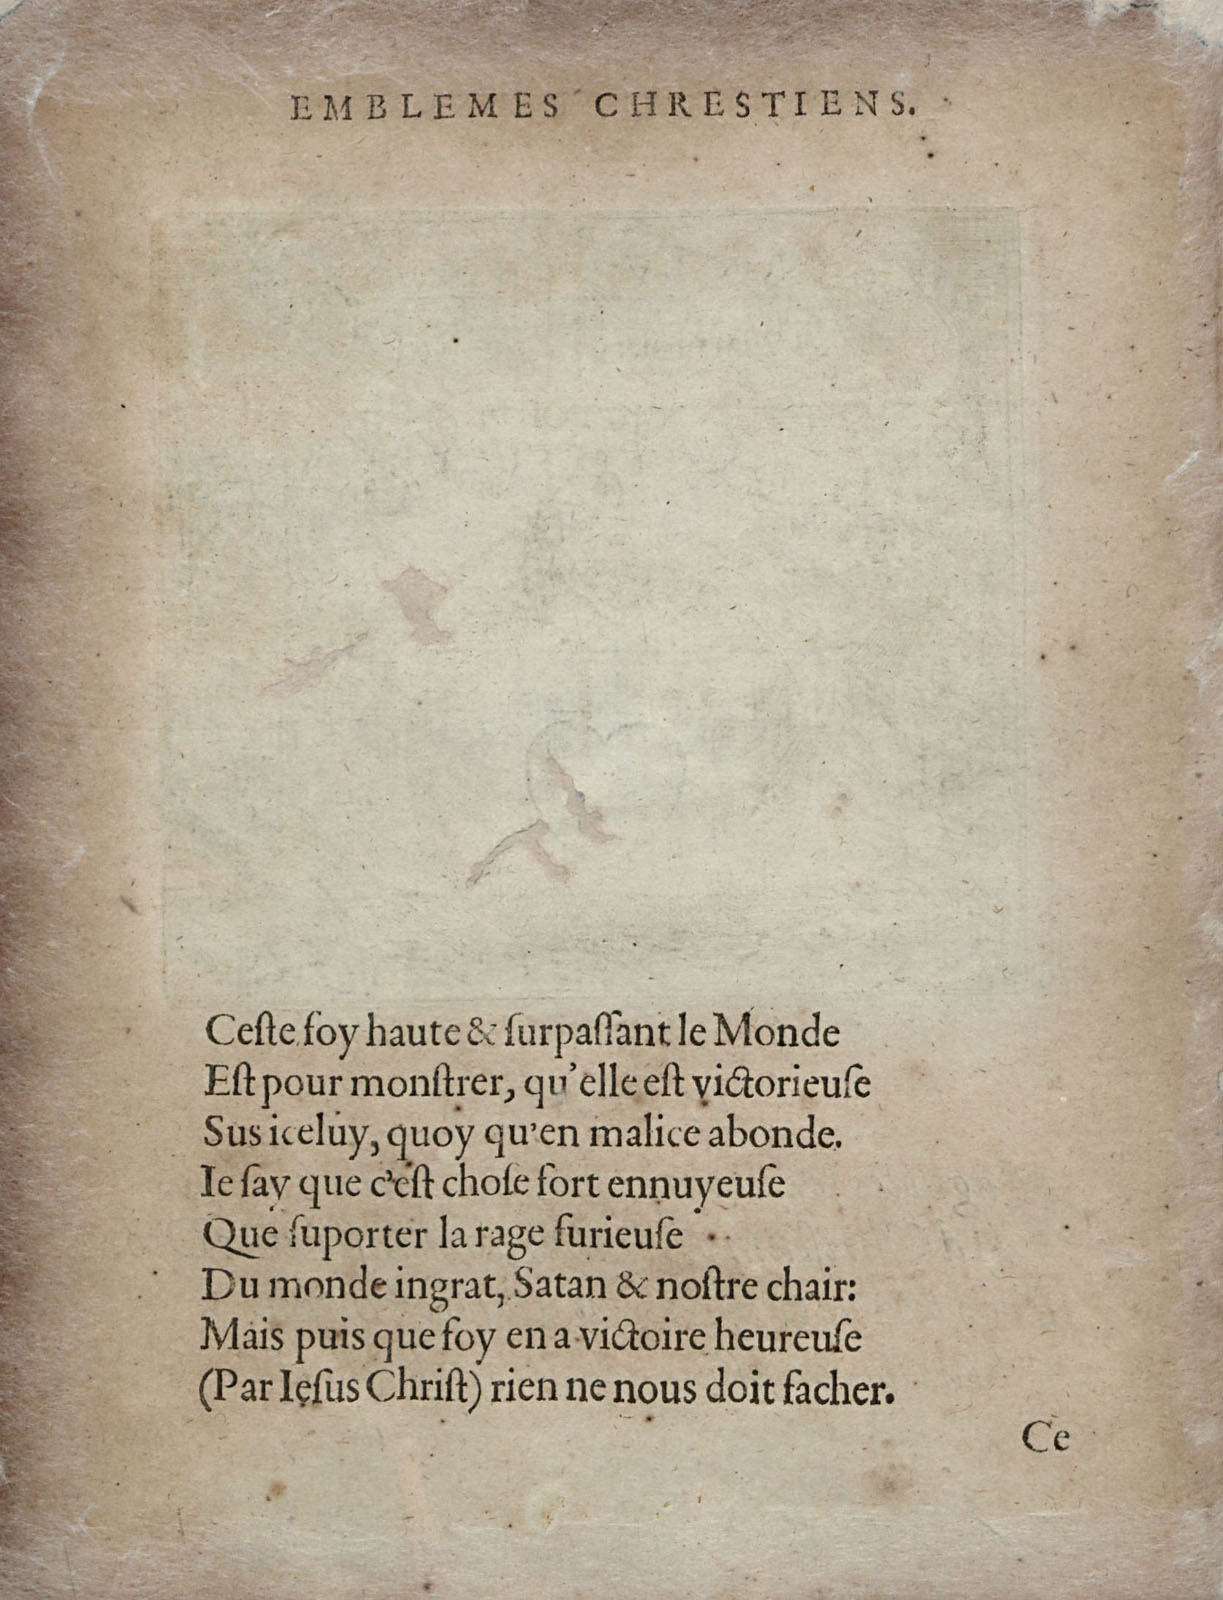 EMBLEMES CHRESTIENS.
Ceſte foy haute & ſurpaſſant le Monde
Eſt pour monſtrer, qu'elle eſt victorieuſe
Sus iceluy, quoy qu'en malice abonde.
Ie ſay que c'eſt choſe fort ennuyeuſe
Que ſuporter la rage furieuſe
Du monde ingrat, Satan & noſtre chair:
Mais puis que foy en a victoire heureuſe
(Par Ieſus Chriſt) rien ne nous doit facher.
Ce